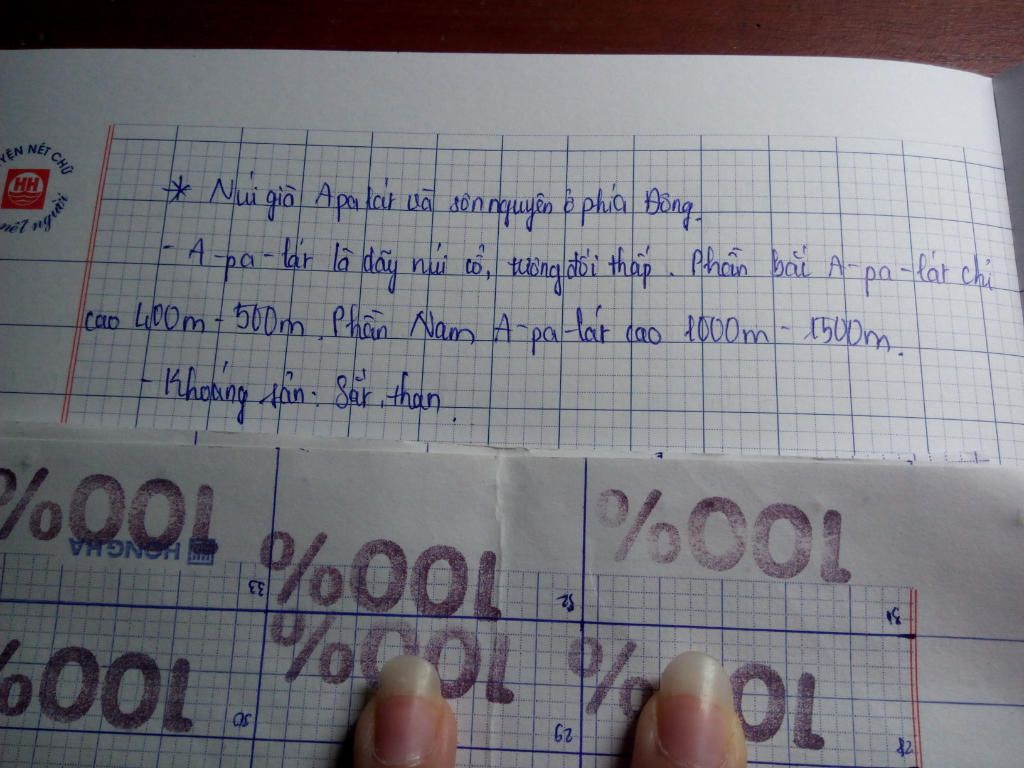 YỆN NÉT CHỮ
HH
nết người
* Núi già Apalát và sơn nguyên ở phía Đông.
- A-pa-lát là dãy núi cổ, tương đối thấp. Phần bắc A-pa-lát chỉ
cao 400m - 500m. Phần Nam A-pa-lát cao 1000m - 1500m.
- Khoáng sản: Sắt, than.
100%
100%
100%
HONG HA
33
32
31
100%
100%
100%
30
29
28